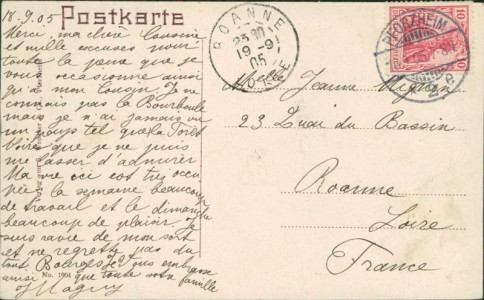 18.9.05
Postkarte
Merci, ma chère Cousine
et mille excuses pour
toute la peine que je
vous occasionne ainsi
qu'à mon Cousin. Je ne
connais pas la Bourboule
mais je n'ai jamais vu
un pays tel que la Forêt
Noire que je ne puis
me lasser d'admirer
Ma vie ici est très occu
pée la semaine beaucoup
de travail et le dimanche
beaucoup de plaisir. Je
suis ravie de mon sort
et ne regrette pas du
tout Je vous embrasse
ainsi que toute votre famille
No. 1904
ROANNE
19-9
05
LOIRE
PFORZHEIM
10
10
Melle Jeanne
23 Quai du Bassin
Roanne
Loire
France